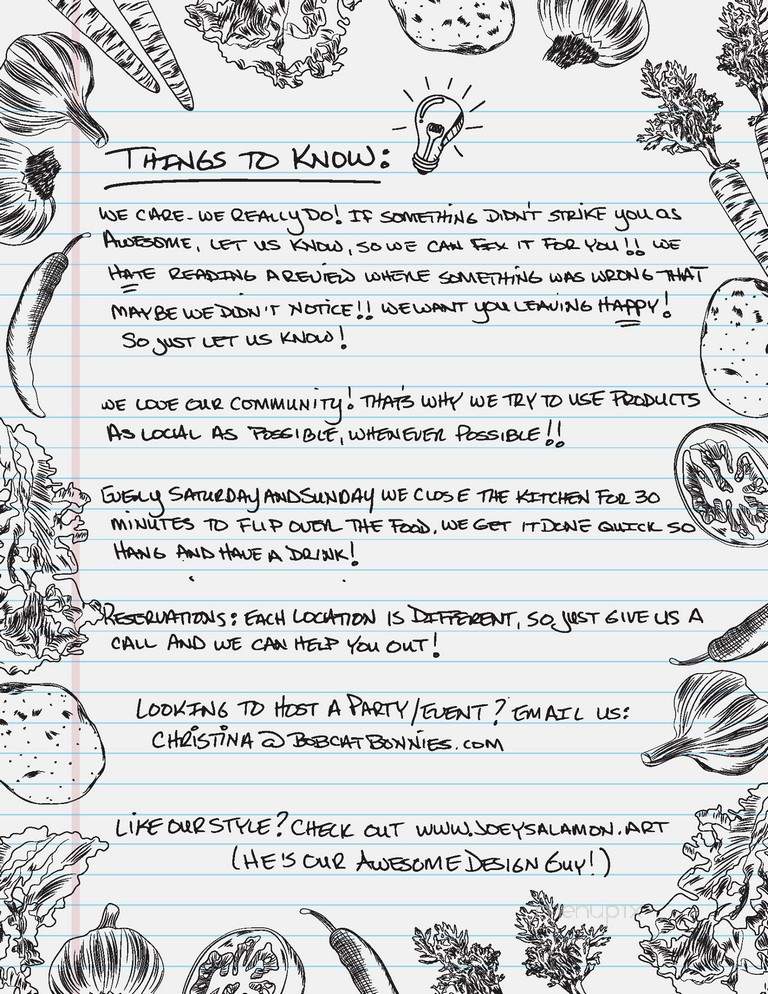 THINGS TO KNOW:
WE CARE - WE REALLY DO! IF SOMETHING DIDN'T STRIKE YOU AS
AWESOME, LET US KNOW, SO WE CAN FIX IT FOR YOU!! WE
HATE READING A REVIEW WHERE SOMETHING WAS WRONG THAT
MAYBE WE DIDN'T NOTICE!! WE WANT YOU LEAVING HAPPY!
SO JUST LET US KNOW!
WE LOVE OUR COMMUNITY! THAT'S WHY WE TRY TO USE PRODUCTS
AS LOCAL AS POSSIBLE, WHENEVER POSSIBLE!!
EVERY SATURDAY AND SUNDAY WE CLOSE THE KITCHEN FOR 30
MINUTES TO FLIP OVER THE FOOD. WE GET IT DONE QUICK SO
HANG AND HAVE A DRINK!
RESERVATIONS: EACH LOCATION IS DIFFERENT, SO JUST GIVE US A
CALL AND WE CAN HELP YOU OUT!
LOOKING TO HOST A PARTY/EVENT? EMAIL US:
CHRISTINA@BOBCATBONNIES.COM
LIKE OUR STYLE? CHECK OUT WWW.JOEYSALAMON.ART
(HE'S OUR AWESOME DESIGN GUY!)
menupix